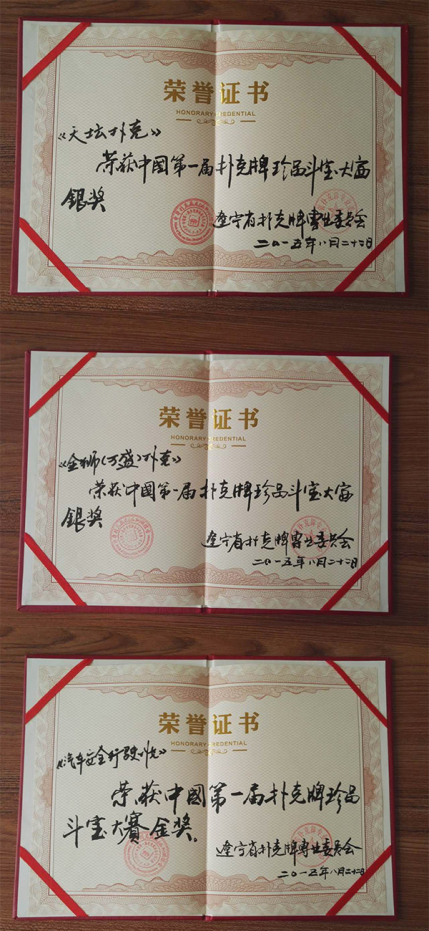 荣誉证书
HONORARY CREDENTIAL
《天坛扑克》
荣获中国第一届扑克牌珍品斗宝大赛
银奖
辽宁省扑克牌专业委员会
二〇一五年八月二十二日
荣誉证书
HONORARY CREDENTIAL
《金狮(万盛)扑克》
荣获中国第一届扑克牌珍品斗宝大赛
银奖
辽宁省扑克牌专业委员会
二〇一五年八月二十二日
荣誉证书
HONORARY CREDENTIAL
《汽车安全行驶
荣获中国第一届扑克牌珍品
斗宝大赛金奖.
辽宁省扑克牌专业委员会
二〇一五年八月二十二日